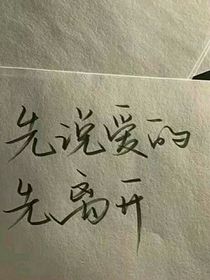 先说爱的
先离开